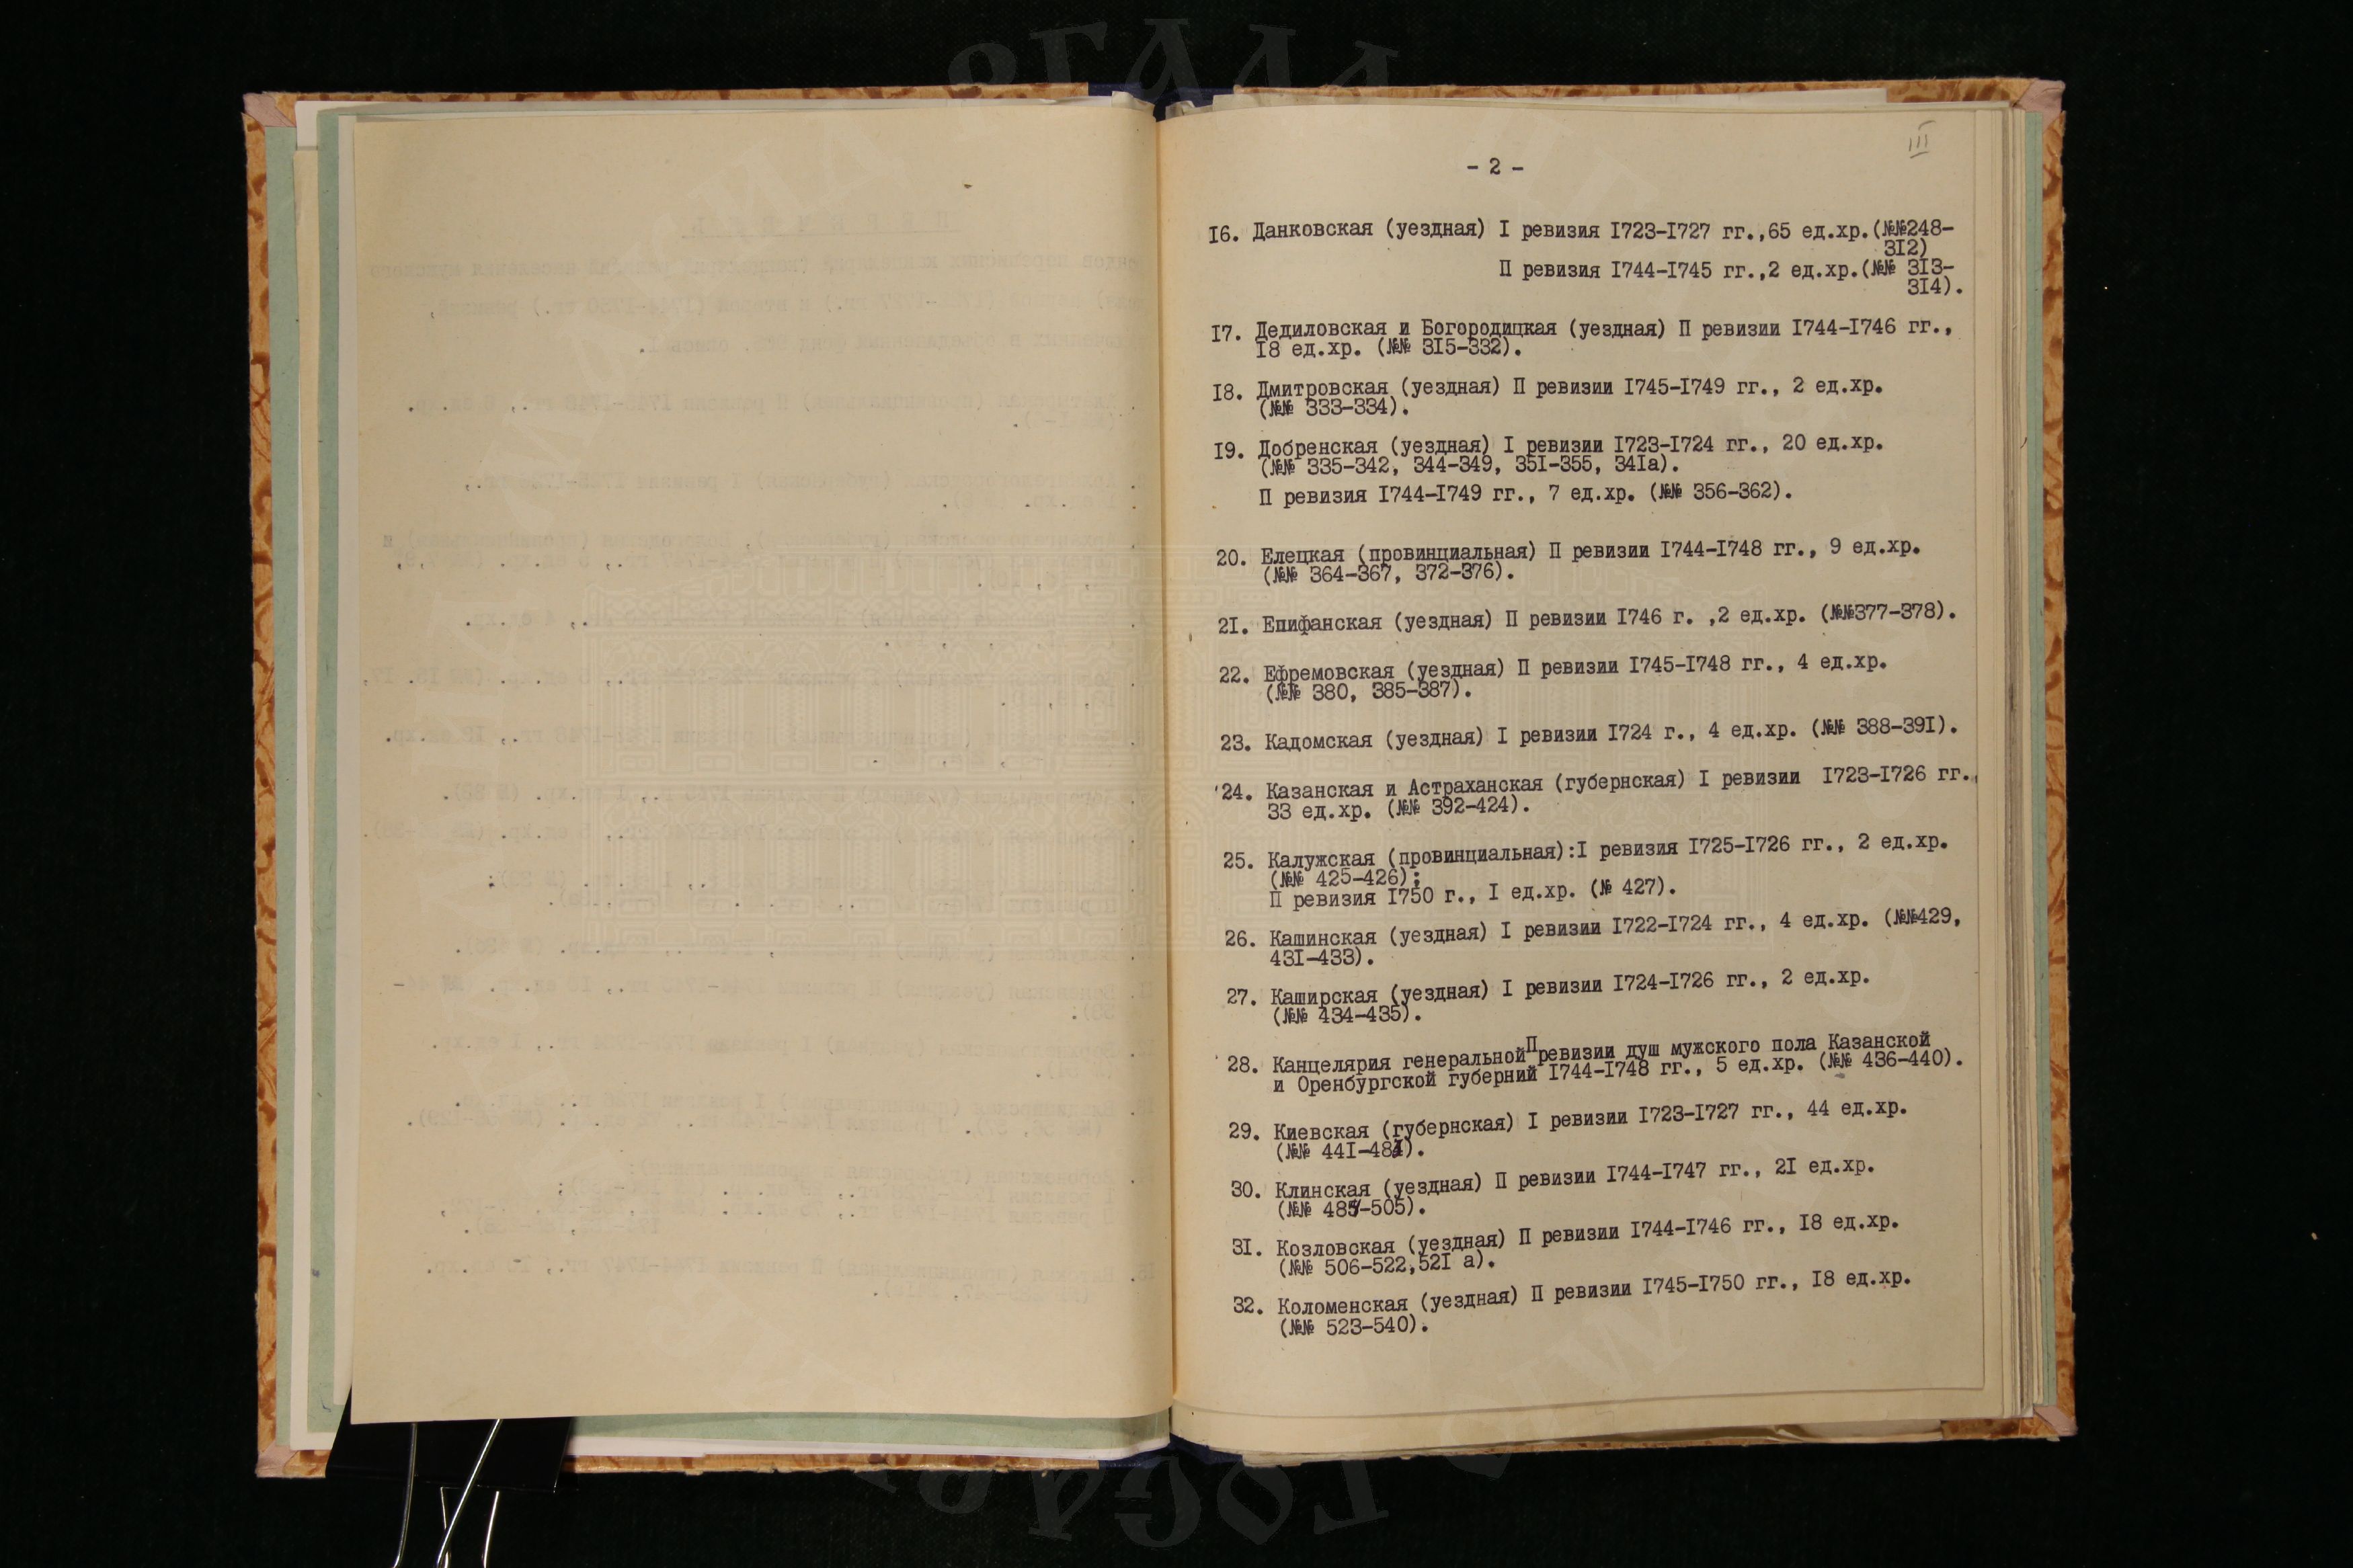 III
- 2 -
16. Данковская (уездная) I ревизия 1723-1727 гг.,65 ед.хр.(№№248-
312)
П ревизия 1744-1745 гг.,2 ед.хр.(№№ 313-
314).
17. Дедиловская и Богородицкая (уездная) П ревизии 1744-1746 гг.,
18 ед.хр. (№№ 315-332).
18. Дмитровская (уездная) П ревизии 1745-1749 гг., 2 ед.хр.
(№№ 333-334).
19. Добренская (уездная) I ревизии 1723-1724 гг., 20 ед.хр.
(№№ 335-342, 344-349, 351-355, 341а).
П ревизия 1744-1749 гг., 7 ед.хр. (№№ 356-362).
20. Елецкая (провинциальная) П ревизии 1744-1748 гг., 9 ед.хр.
(№№ 364-367, 372-376).
21. Епифанская (уездная) П ревизии 1746 г. ,2 ед.хр. (№№377-378).
22. Ефремовская (уездная) П ревизии 1745-1748 гг., 4 ед.хр.
(№№ 380, 385-387).
23. Кадомская (уездная) I ревизии 1724 г., 4 ед.хр. (№№ 388-391).
24. Казанская и Астраханская (губернская) I ревизии 1723-1726 гг.,
33 ед.хр. (№№ 392-424).
25. Калужская (провинциальная):I ревизия 1725-1726 гг., 2 ед.хр.
(№№ 425-426);
П ревизия 1750 г., I ед.хр. (№ 427).
26. Кашинская (уездная) I ревизии 1722-1724 гг., 4 ед.хр. (№№429,
431-433).
27. Каширская (уездная) I ревизии 1724-1726 гг., 2 ед.хр.
(№№ 434-435).
28. Канцелярия генеральной П ревизии душ мужского пола Казанской
и Оренбургской губерний 1744-1748 гг., 5 ед.хр. (№№ 436-440).
29. Киевская (губернская) I ревизии 1723-1727 гг., 44 ед.хр.
(№№ 441-484).
30. Клинская (уездная) П ревизии 1744-1747 гг., 21 ед.хр.
(№№ 485-505).
31. Козловская (уездная) П ревизии 1744-1746 гг., 18 ед.хр.
(№№ 506-522,521 а).
32. Коломенская (уездная) П ревизии 1745-1750 гг., 18 ед.хр.
(№№ 523-540).